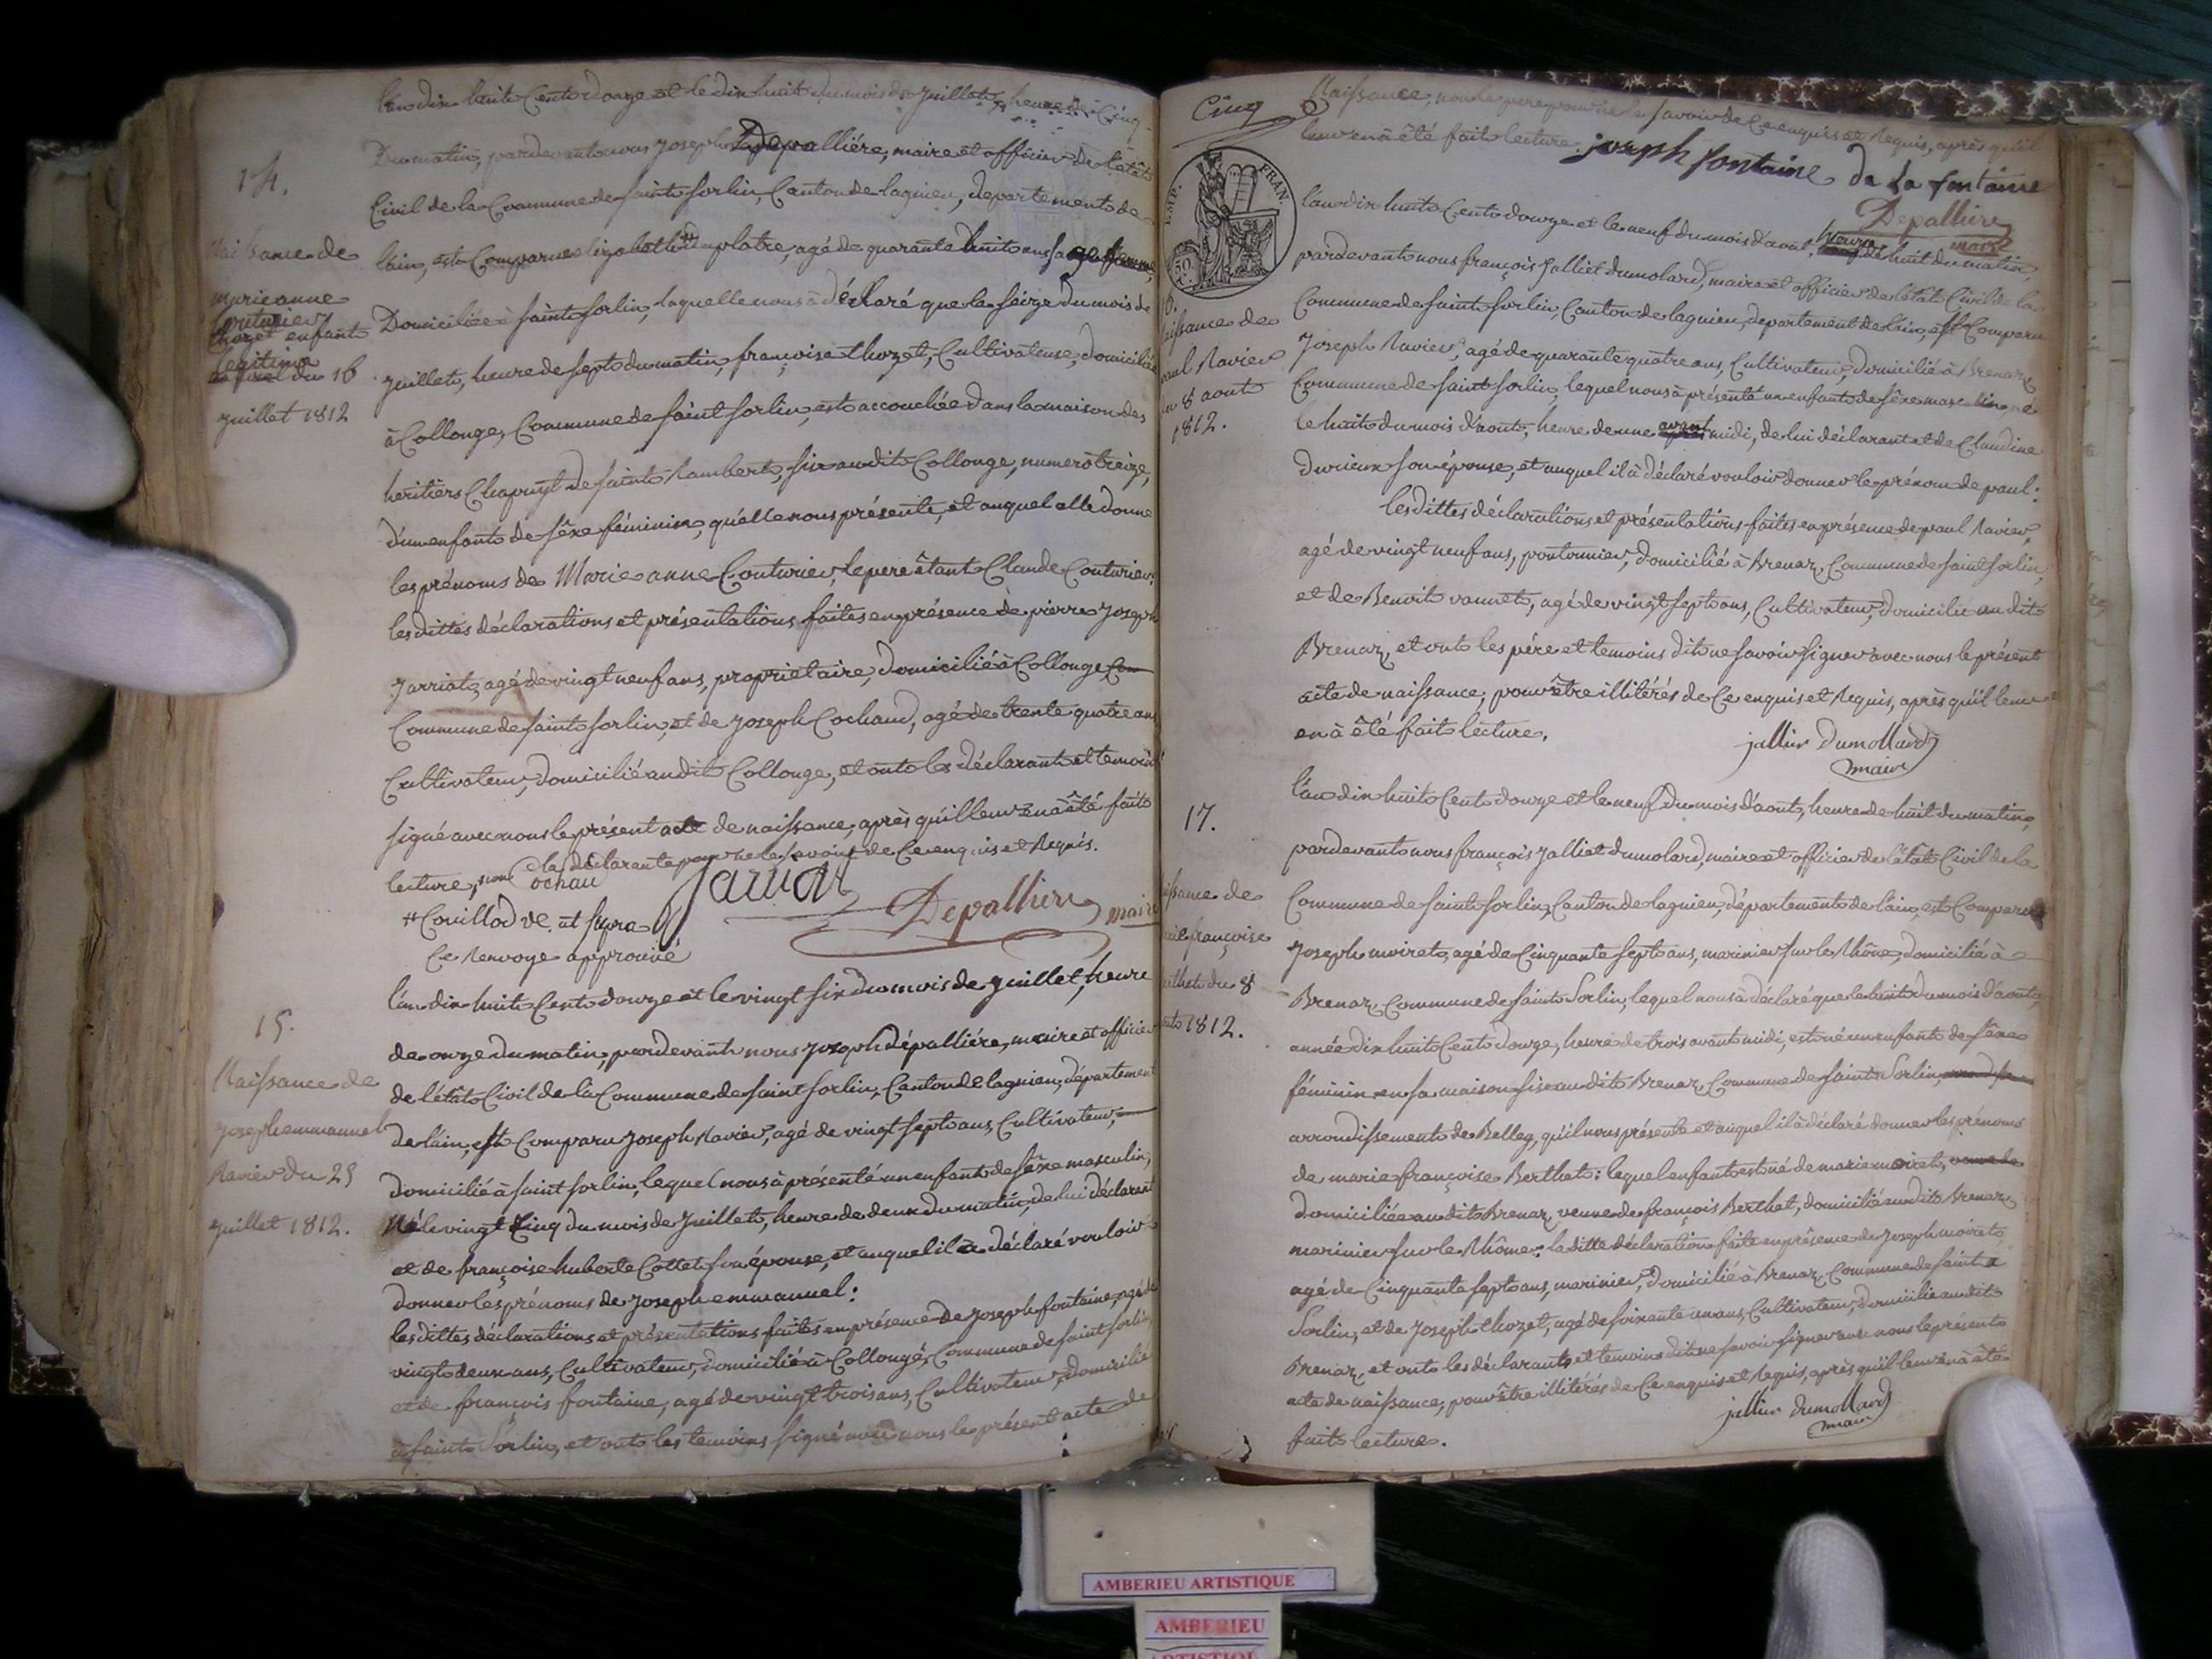 l'an dix huit Cent douze et le dix huit du mois de Juillet, heure de Cinq
Du matin, pardevant nous Joseph Depalliére, maire et officier de l'état
14.
Civil de la Commune de saint sorlin, Canton de lagnieu, departement de
Naissance de
marie anne
Couturier
thozet enfant
Légitime
du 16
juillet 1812
l'ain, est Comparue Elizabeth # duplatre, agé de quarante huit ans, sage femme,
Domiciliée à saint sorlin, laquelle nous à déclaré que le seize du mois de
juillet, heure de sept du matin, françoise thozet, Cultivateuse, domiciliée
à Collonge, Commune de saint sorlin, est accouchée dans la maison des
heritiers Chapuyt de saint Rambert, sise audit Collonge, numero treize,
d'un enfant de séxe féminin, qu'elle nous présente, et auquel elle donne
les prénoms de Marie anne Couturier, le pere étant Claude Couturier:
les dittes déclarations et présentations faites en présence de pierre Joseph
Jarriat, agé de vingt neuf ans, propriétaire, domicilié à Collonge, Com
Commune de saint sorlin, et de Joseph Cochaud, agé de trente quatre ans
Cultivateur, domicilié audit Collonge, et ont les déclarant et temoins
signé avec nous le présent acte de naissance, après qu'il leur en à été fait
lecture, non la déclarante pour ne le savoir de Ce enquis et Requis.
Cochau Jarriat
# Couillod ve. ut supra Depalliere maire
Ce Renvoye approuvé
15.
Naissance de
Joseph emmanuel
Ravier du 25
juillet 1812.
l'an dix huit Cent douze et le vingt six du mois de juillet, heure
de onze du matin, pardevant nous Joseph dépalliére, maire et officier
de l'état Civil de la Commune de saint sorlin, Canton de lagnieu, département
de l'ain, est Comparu Joseph Ravier, agé de vingt sept ans, Cultivateur,
domicilié à saint sorlin, lequel nous à présenté un enfant de séxe masculin,
Né le vingt Cinq du mois de Juillet, heure de deux du matin, de lui déclarant
et de françoise huberte Cottet son épouse, et auquel il à déclaré vouloir
donner les prénoms de Joseph emmanuel:
les dittes déclarations et présentations faites en présence de Joseph fontaine, agé de
vingt deux ans, Cultivateur, domicilié à Collonge, Commune de saint sorlin,
et de françois fontaine, agé de vingt trois ans, Cultivateur, domicilié
à saint Sorlin, et ont les temoins signé avec nous le présent acte de
Cinq
Naissance, non le pere pour ne le savoir de Ce enquis et Requis, après qu'il
leur en à été fait lecture. joseph fontaine de La fontaine
Depalliere
maire
EMP. FRAN.
l'an dix huit Cent douze et le neuf du mois d'aout, heure de huit du matin,
pardevant nous françois Jalliet dumolard, maire et officier de l'état Civil de la
6.
aissance de
aul Ravier
u 8 aout
1812.
Commune de saint sorlin, Canton de lagnieu, departement de l'ain, est Comparu
Joseph Ravier, agé de quarante quatre ans, Cultivateur, domicilié à Brenaz
Commune de saint sorlin, lequel nous à présenté un enfant de séxe masculin né
le huit du mois d'aout, heure de une avant midi, de lui déclarant et de Claudine
Durieux son épouse, et auquel il à déclaré vouloir donner le prénom de paul:
les dittes déclarations et présentations faites en présence de paul Ravier,
agé de vingt neuf ans, pontonnier, domicilié à Brenaz, Commune de saint sorlin,
et de Benoit vannet, agé de vingt sept ans, Cultivateur, domicilié au dit
Brenaz, et ont les pére et temoins dit ne savoir signer avec nous le présent
acte de naissance, pour être illitérés de Ce enquis et Requis, après qu'il leur
en à été fait lecture.
jallier dumollard
maire
17.
issance de
rie françoise
rthet du 8
out 1812.
l'an dix huit Cent douze et le neuf du mois d'aout, heure de huit du matin,
pardevant nous françois Jalliet dumolard, maire et officier de l'état Civil de la
Commune de saint sorlin, Canton de lagnieu, département de l'ain, est Comparu
Joseph moiret, agé de Cinquante sept ans, marinier sur le Rhône, domicilié à
Brenaz, Commune de saint Sorlin, lequel nous à déclaré que le huit du mois d'aout,
année dix huit Cent douze, heure de trois avant midi, est né un enfant de séxe
féminin en sa maison sise audit Brenaz, Commune de saint Sorlin,
arrondissement de Belley, qu'il nous présente et auquel il à déclaré donner les prénoms
de marie françoise Berthet: lequel enfant est né de marie moiret, veuve de
domiciliée audit Brenaz, veuve de françois Berthet, domicilié audit Brenaz,
marinier sur le Rhône: la ditte déclaration faite en présence de Joseph moiret
agé de Cinquante sept ans, marinier, domicilié à Brenaz, Commune de saint
Sorlin, et de Joseph thozet, agé de soixante un ans, Cultivateur, domicilié au dit
Brenaz, et ont les déclarants et temoins dit ne savoir signer avec nous le présent
acte de naissance, pour être illitérés de Ce enquis et Requis, après qu'il leur en à été
fait lecture.
jallier dumollard
maire
AMBERIEU ARTISTIQUE
AMBERIEU
ARTISTIQUE